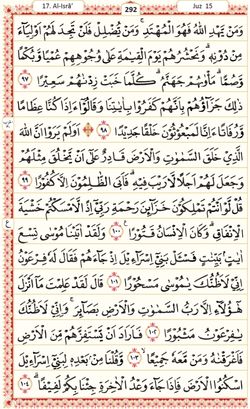 17. Al-Isrâ'
292
Juz 15
وَمَنْ يَهْدِ اللّٰهُ فَهُوَ الْمُهْتَدِۚ وَمَنْ يُضْلِلْ فَلَنْ تَجِدَ لَهُمْ اَوْلِيَآءَ
مِنْ دُوْنِهٖۗ وَنَحْشُرُهُمْ يَوْمَ الْقِيٰمَةِ عَلٰى وُجُوْهِهِمْ عُمْيًا وَّبُكْمًا
وَّصُمًّاۗ مَأْوٰىهُمْ جَهَنَّمُۗ كُلَّمَا خَبَتْ زِدْنٰهُمْ سَعِيْرًا ۝٩٧
ذٰلِكَ جَزَاۤؤُهُمْ بِاَنَّهُمْ كَفَرُوْا بِاٰيٰتِنَا وَقَالُوْٓا ءَاِذَا كُنَّا عِظَامًا
وَّرُفَاتًا ءَاِنَّا لَمَبْعُوْثُوْنَ خَلْقًا جَدِيْدًا ۝٩٨ ۞ اَوَلَمْ يَرَوْا اَنَّ اللّٰهَ
الَّذِيْ خَلَقَ السَّمٰوٰتِ وَالْاَرْضَ قَادِرٌ عَلٰٓى اَنْ يَّخْلُقَ مِثْلَهُمْ
وَجَعَلَ لَهُمْ اَجَلًا لَّا رَيْبَ فِيْهِۗ فَاَبَى الظّٰلِمُوْنَ اِلَّا كُفُوْرًا ۝٩٩
قُلْ لَّوْ اَنْتُمْ تَمْلِكُوْنَ خَزَاۤىِٕنَ رَحْمَةِ رَبِّيْٓ اِذًا لَّاَمْسَكْتُمْ خَشْيَةَ
الْاِنْفَاقِۗ وَكَانَ الْاِنْسَانُ قَتُوْرًا ۝١٠٠ وَلَقَدْ اٰتَيْنَا مُوْسٰى تِسْعَ
اٰيٰتٍۢ بَيِّنٰتٍ فَسْـَٔلْ بَنِيْٓ اِسْرَاۤءِيْلَ اِذْ جَاۤءَهُمْ فَقَالَ لَهٗ فِرْعَوْنُ
اِنِّيْ لَاَظُنُّكَ يٰمُوْسٰى مَسْحُوْرًا ۝١٠١ قَالَ لَقَدْ عَلِمْتَ مَآ اَنْزَلَ
هٰٓؤُلَاۤءِ اِلَّا رَبُّ السَّمٰوٰتِ وَالْاَرْضِ بَصَاۤىِٕرَۚ وَاِنِّيْ لَاَظُنُّكَ
يٰفِرْعَوْنُ مَثْبُوْرًا ۝١٠٢ فَاَرَادَ اَنْ يَّسْتَفِزَّهُمْ مِّنَ الْاَرْضِ
فَاَغْرَقْنٰهُ وَمَنْ مَّعَهٗ جَمِيْعًا ۝١٠٣ وَّقُلْنَا مِنْۢ بَعْدِهٖ لِبَنِيْٓ اِسْرَاۤءِيْلَ
اسْكُنُوا الْاَرْضَ فَاِذَا جَاۤءَ وَعْدُ الْاٰخِرَةِ جِئْنَا بِكُمْ لَفِيْفًاۗ ۝١٠٤